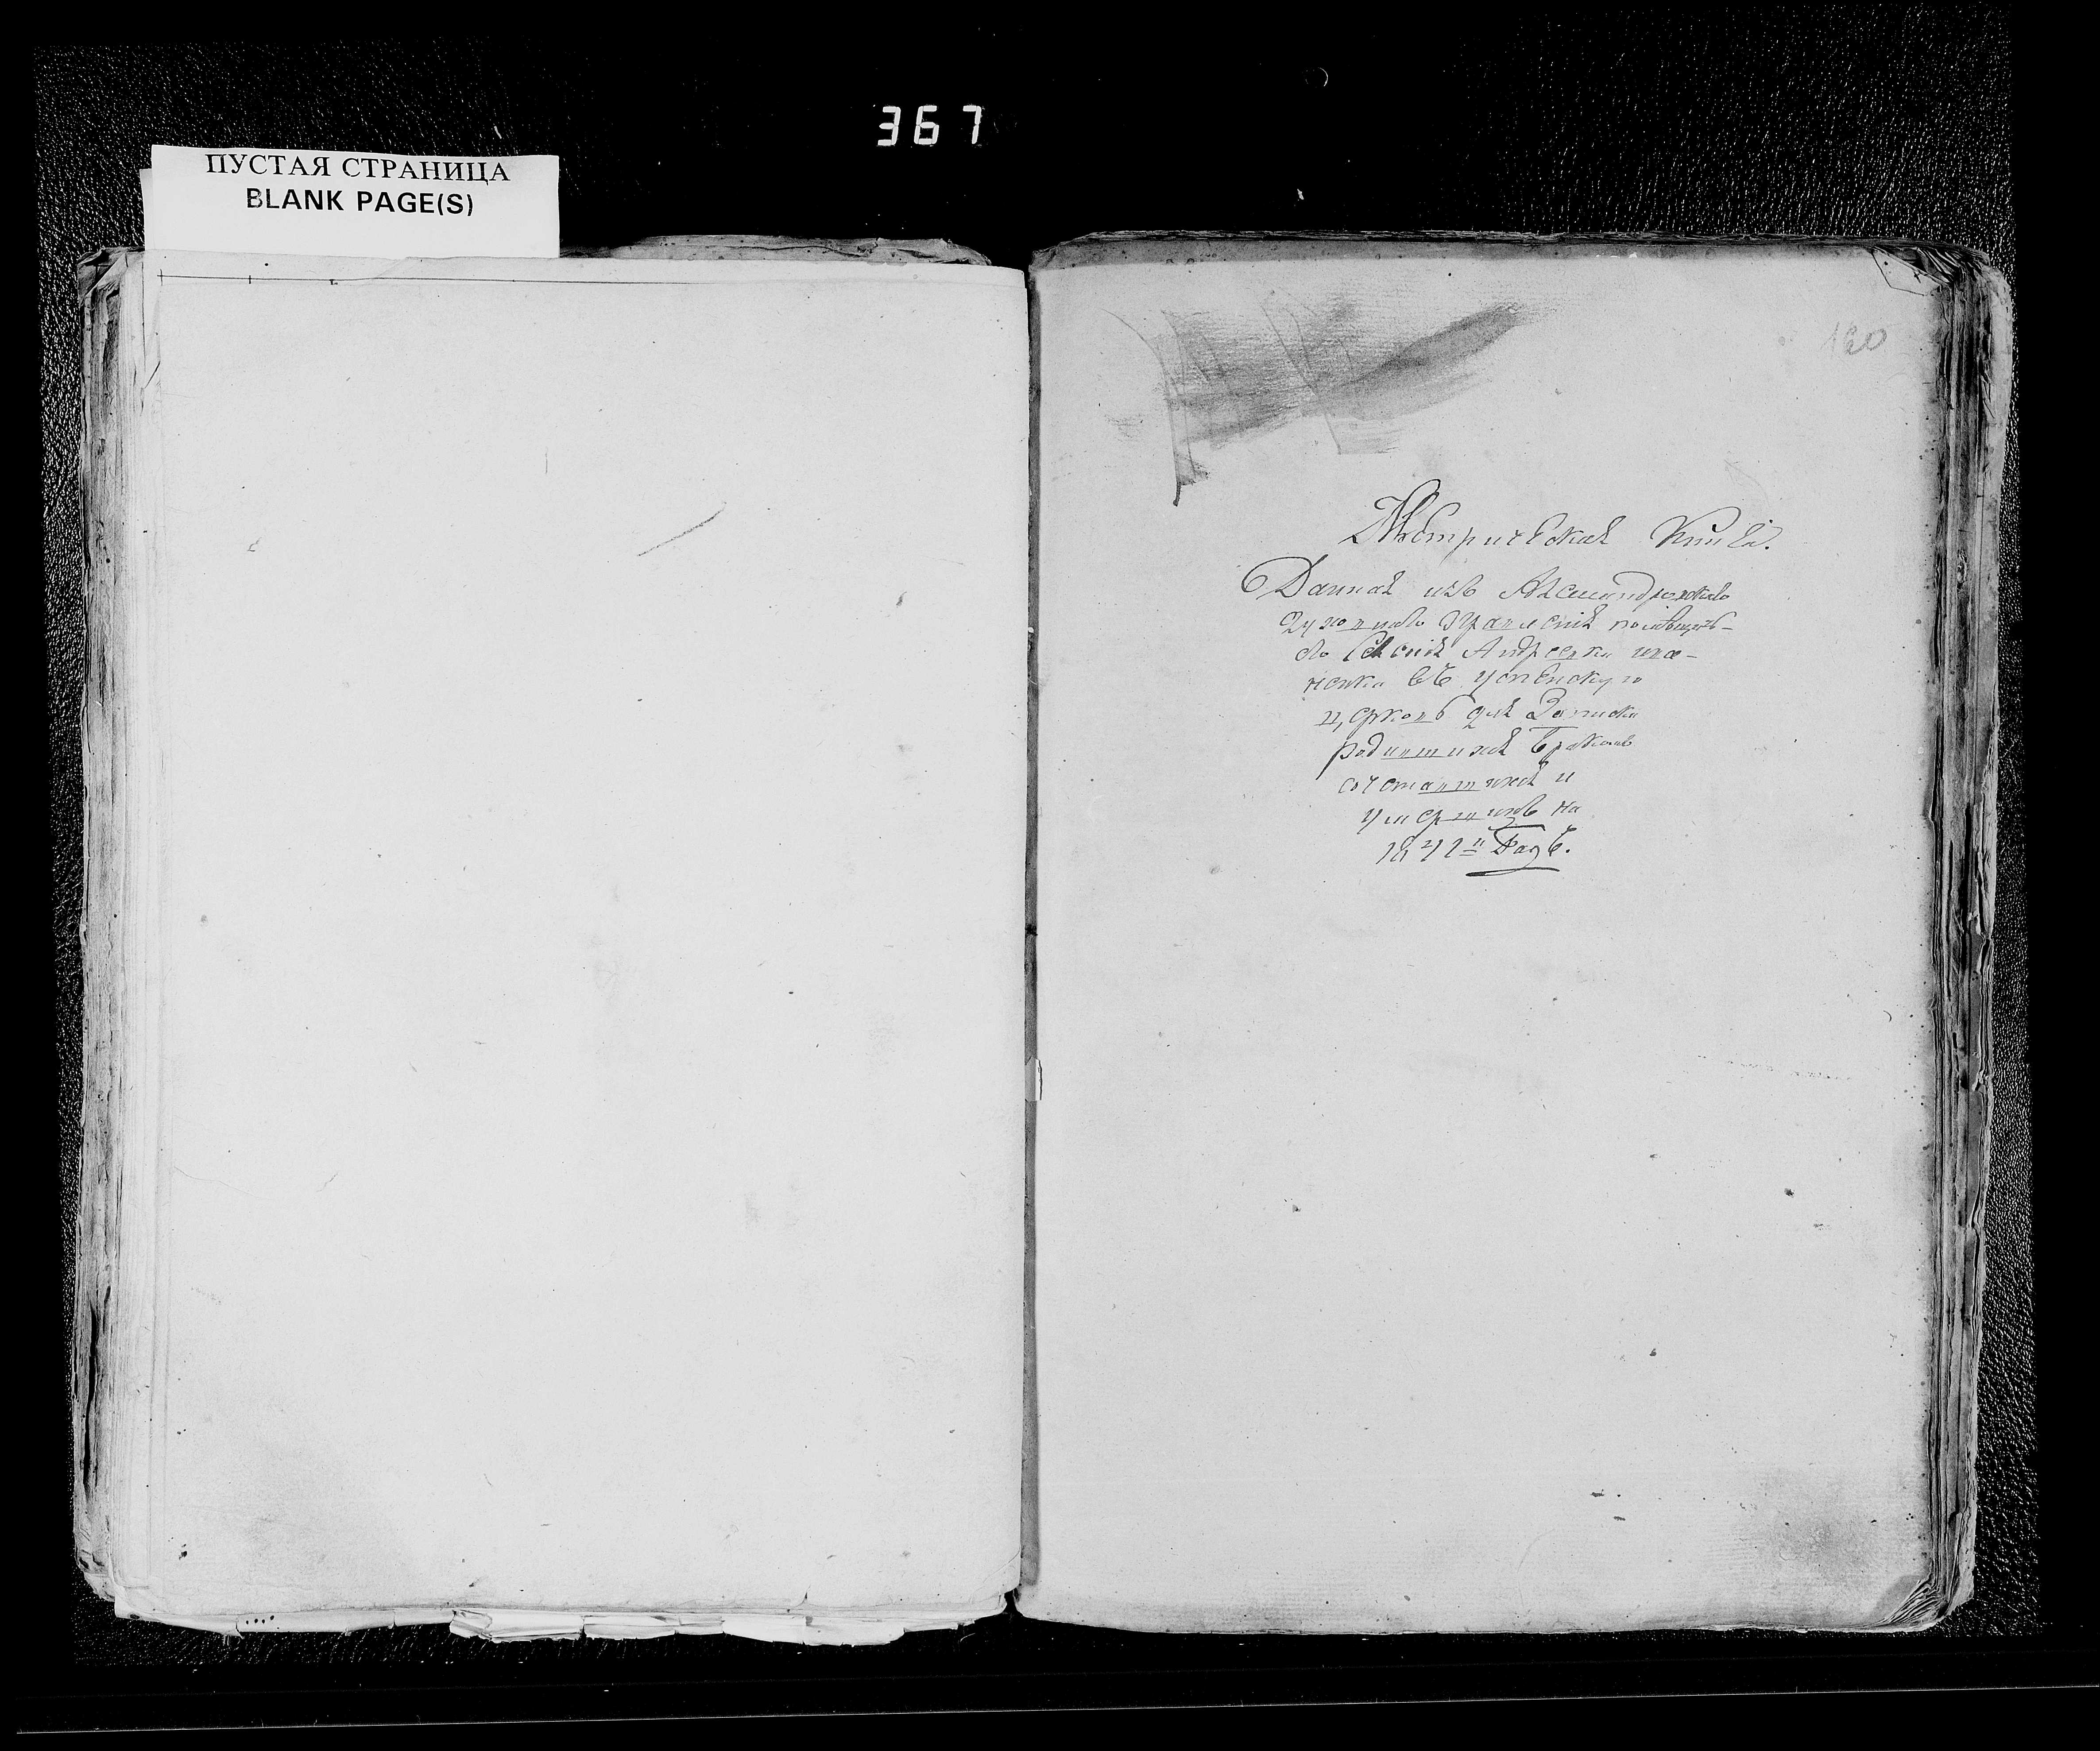 367
ПУСТАЯ СТРАНИЦА
BLANK PAGE(S)
160
Метрическая Книга.
Данная изъ Александровскаго
духовнаго правления
Андреевки
въ Успенскую
церковъ для Записки
родившихся Браком
сочетавшихся и
умершихъ на
Годъ.